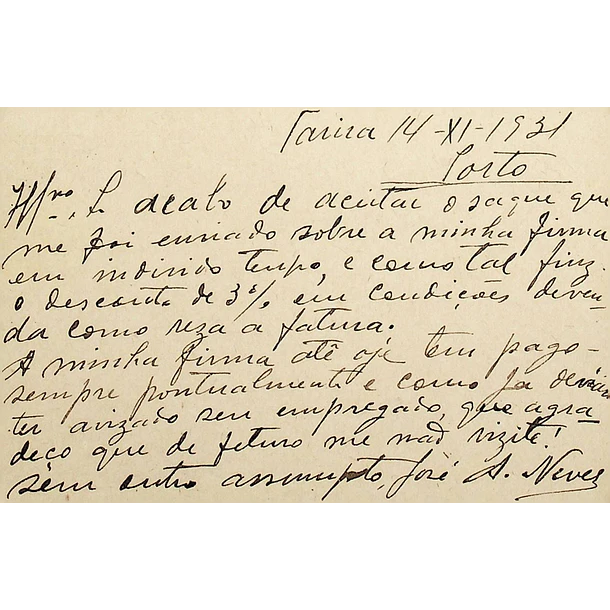 Tavira 14-XI-1931
Porto
Illmo. Sr. acabo de aceitar o saque que
me foi enviado sobre a minha firma
em individo tempo, e como tal fiz
o desconto de 3% em condições de ven-
da como reza a fatura.
A minha firma atê oje tem pago-
sempre pontualmente e como ja
ter avizado seu empregado, que agra-
deço que de foturo me não vizite!
sem outro assumpto, José A. Neves